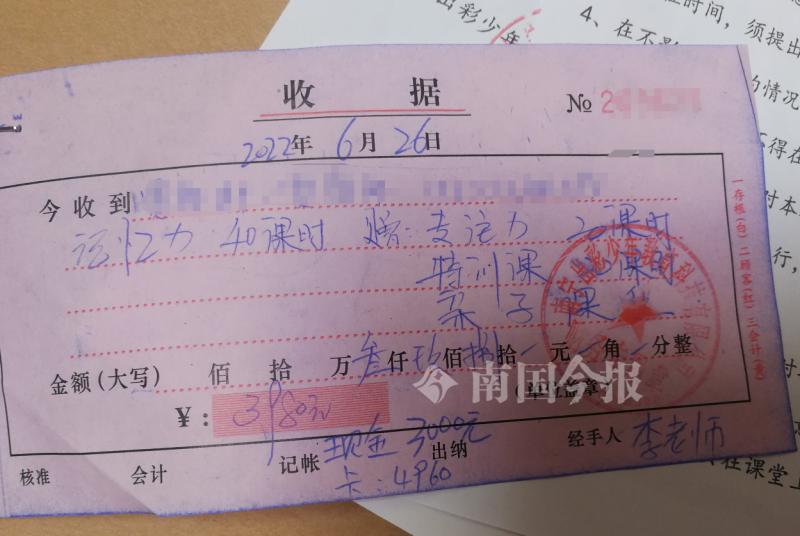 出彩少年
时间，须提出
4、在不影
的情况
不得在
对本
行，
在课堂上
收 据
№ 2
2022年 6月 26日
今收到
记忆力 40课时 赠：专注力 20课时
特训课 课时
亲子课
金额（大写） 佰 拾 万 叁仟玖佰捌拾 元 角 分整
（单位盖章）
¥：3980元
核准 会计 记帐 出纳 经手人 李老师
现金 3000元
卡：4960
一存根(白) 二顾客(红) 三会计(黄)
南国今报